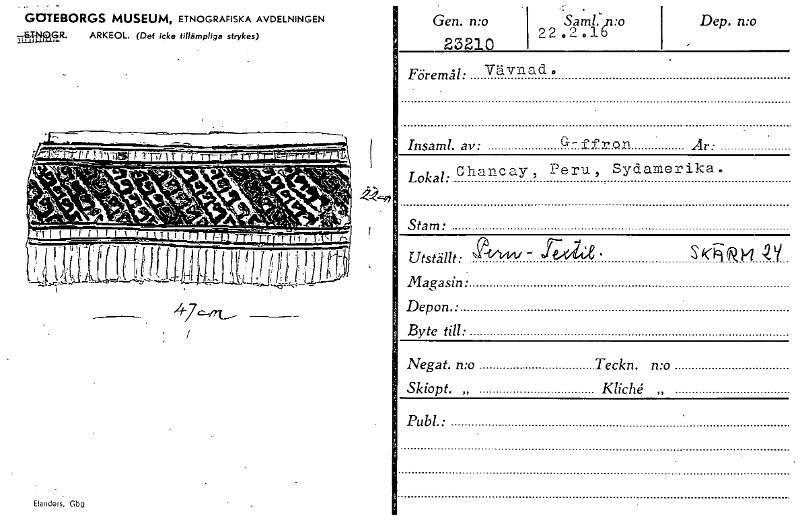 GÖTEBORGS MUSEUM, ETNOGRAFISKA AVDELNINGEN
ETNOGR. ARKEOL. (Det icke tillämpliga strykes)
22cm
47cm
Elanders, Gbg
Gen. n:o Saml. n:o Dep. n:o
23210 22.2.16
Föremål: Vävnad.
Insaml. av: Gaffron År:
Lokal: Chancay, Peru, Sydamerika.
Stam:
Utställt: Peru - Textil. SKÄRM 24
Magasin:
Depon.:
Byte till:
Negat. n:o Teckn. n:o
Skiopt. „ Kliché „
Publ.: